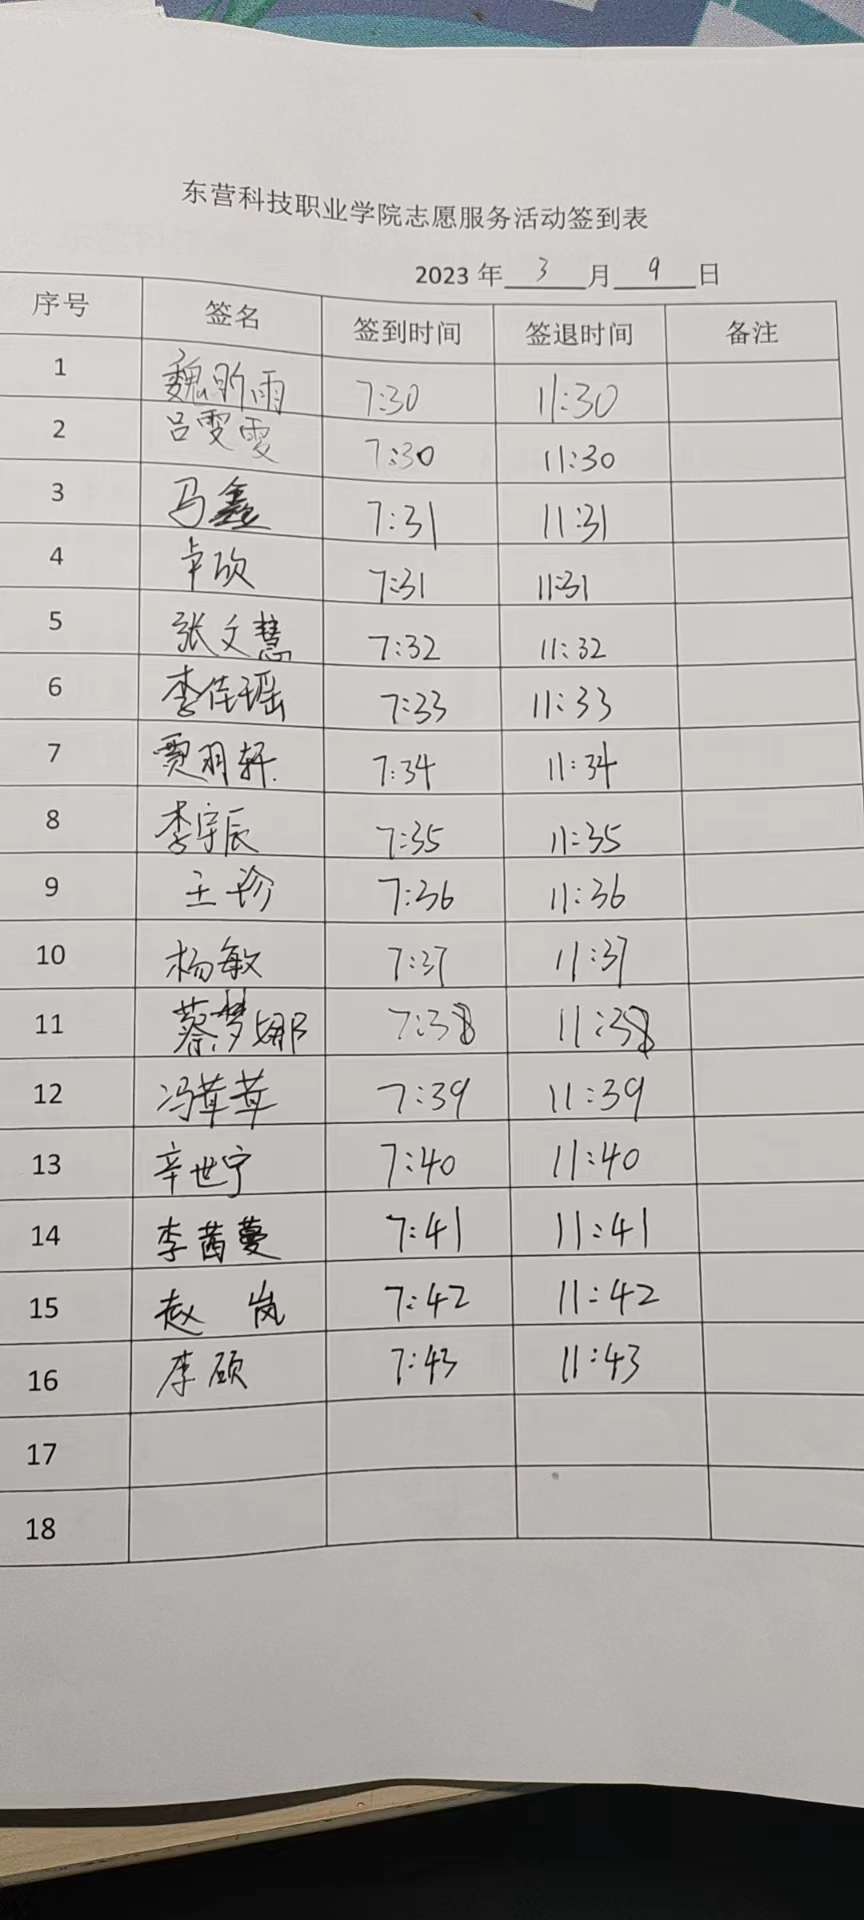 东营科技职业学院志愿服务活动签到表
2023 年 3 月 9 日
序号 签名 签到时间 签退时间 备注
1 魏昕雨 7:30 11:30
2 吕雯雯 7:30 11:30
3 马鑫 7:31 11:31
4 卓欣 7:31 11:31
5 张文慧 7:32 11:32
6 李佳瑶 7:33 11:33
7 贾羽轩 7:34 11:34
8 李宇辰 7:35 11:35
9 王珍 7:36 11:36
10 杨敏 7:37 11:37
11 蔡梦娜 7:38 11:38
12 冯茸茸 7:39 11:39
13 辛世宁 7:40 11:40
14 李茜蔓 7:41 11:41
15 赵 岚 7:42 11:42
16 李硕 7:43 11:43
17
18